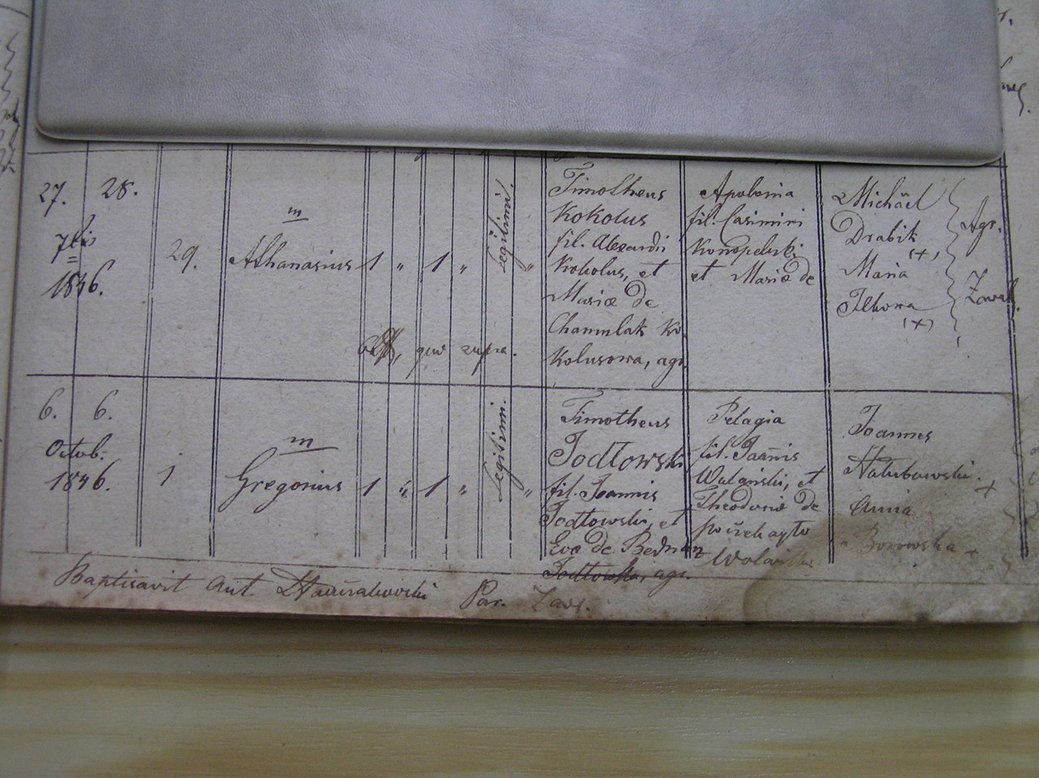 27. 28.
7bris
1846.
29.
m
Athanasius 1 " 1 " legitimi. "
Timotheus
Kokolus
fil. Alexandri
Kokolus, et
Mariæ de
Chamulak Ko
kolusowa, agr.
Apolonia
fil. Casimiri
Konopelski
et Mariæ de
Michäel
Drabik
(+)
Maria
Ilkowa
(+)
Agr.
Zawal.
obst, quæ supra.
6. 6.
Octob:
1846.
1
m
Gregorius 1 " 1 " Legitimi. "
Timotheus
Jodłowski
fil. Joannis
Jodłowski, et
Evæ de Bednarz
Jodłowska, agr.
Pelagia
fil. Joannis
et
Theodoriæ de
Joannes
+
Anna
Borowska +
Baptisavit Ant. Par. Zaw.